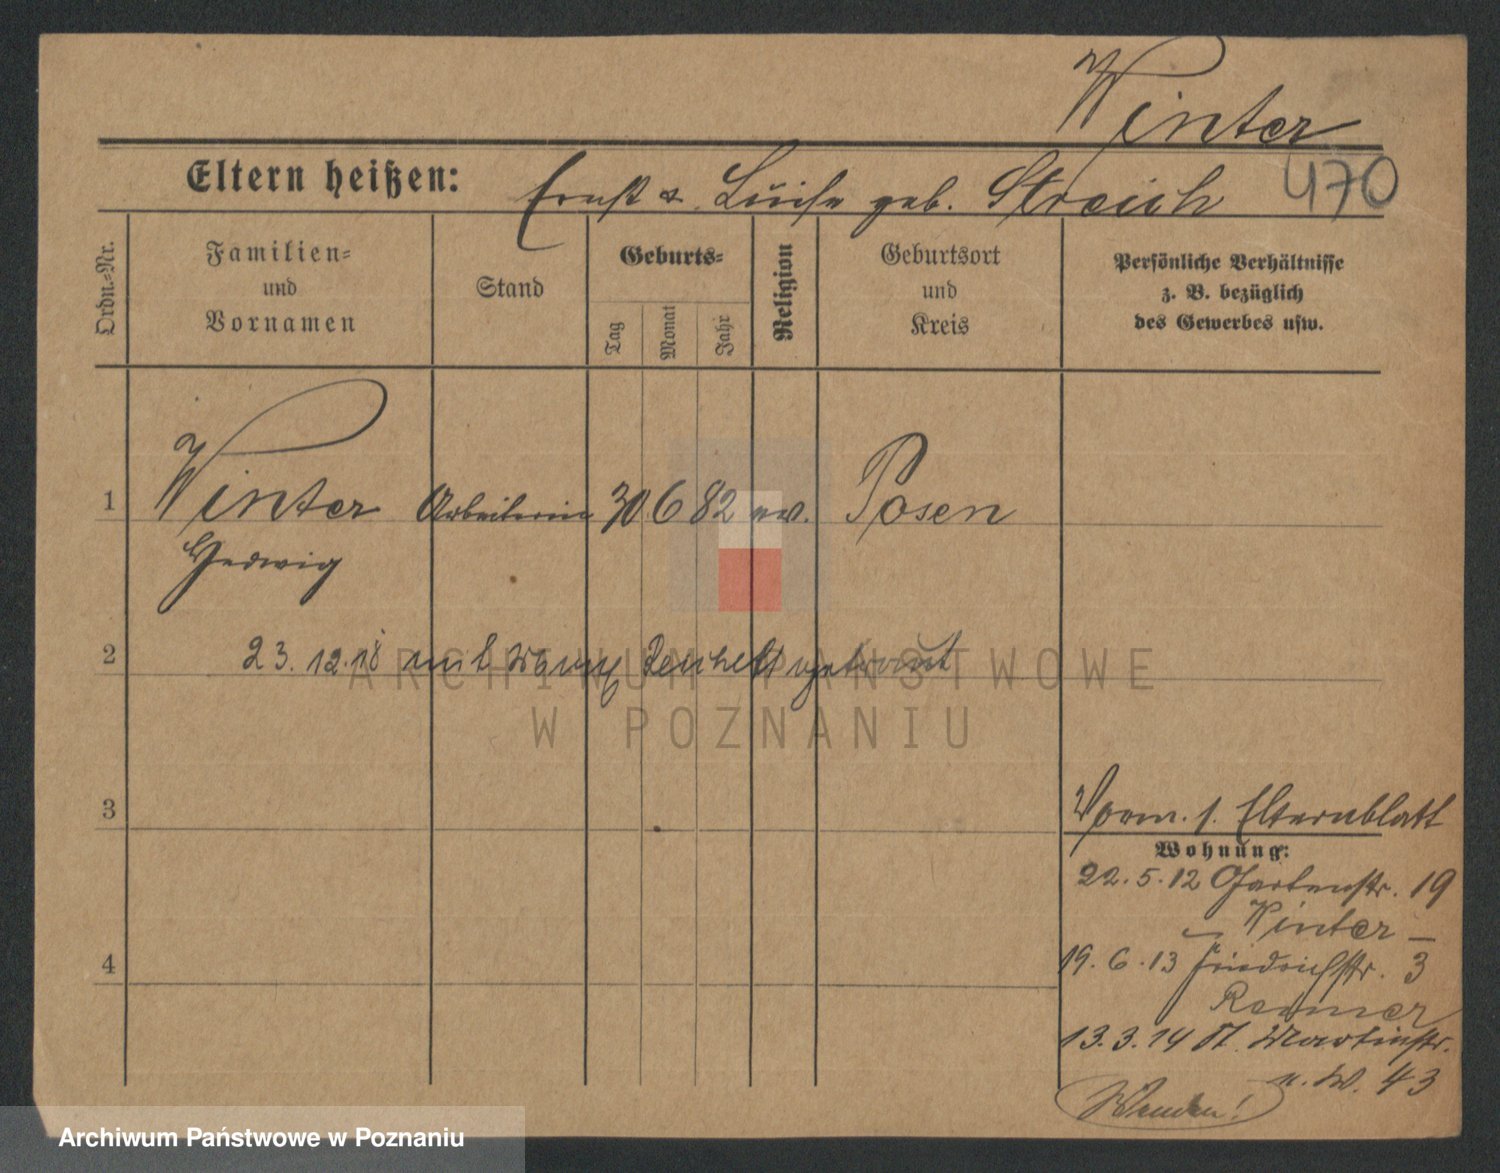 Winter
470
Eltern heißen: Ernst & Luise geb. Streich
Ordn.=Nr.
Familien=
und
Vornamen
Stand
Geburts=
Tag
Monat
Jahr
Religion
Geburtsort
und
Kreis
Persönliche Verhältnisse
z. B. bezüglich
des Gewerbes usw.
1 Winter Arbeiterin 30 6 82 ev. Posen
Hedwig
2 23.12.18 mit Georg getraut
3
Vorm. s. Elternblatt
Wohnung:
22.5.12 Gartenstr. 19
– Winter –
4
19.6.13 Friedrichstr. 3
Remer
13.3.14 St. Martinstr.
n. W. 43
Wenden!
ARCHIWUM PAŃSTWOWE
W POZNANIU
Archiwum Państwowe w Poznaniu